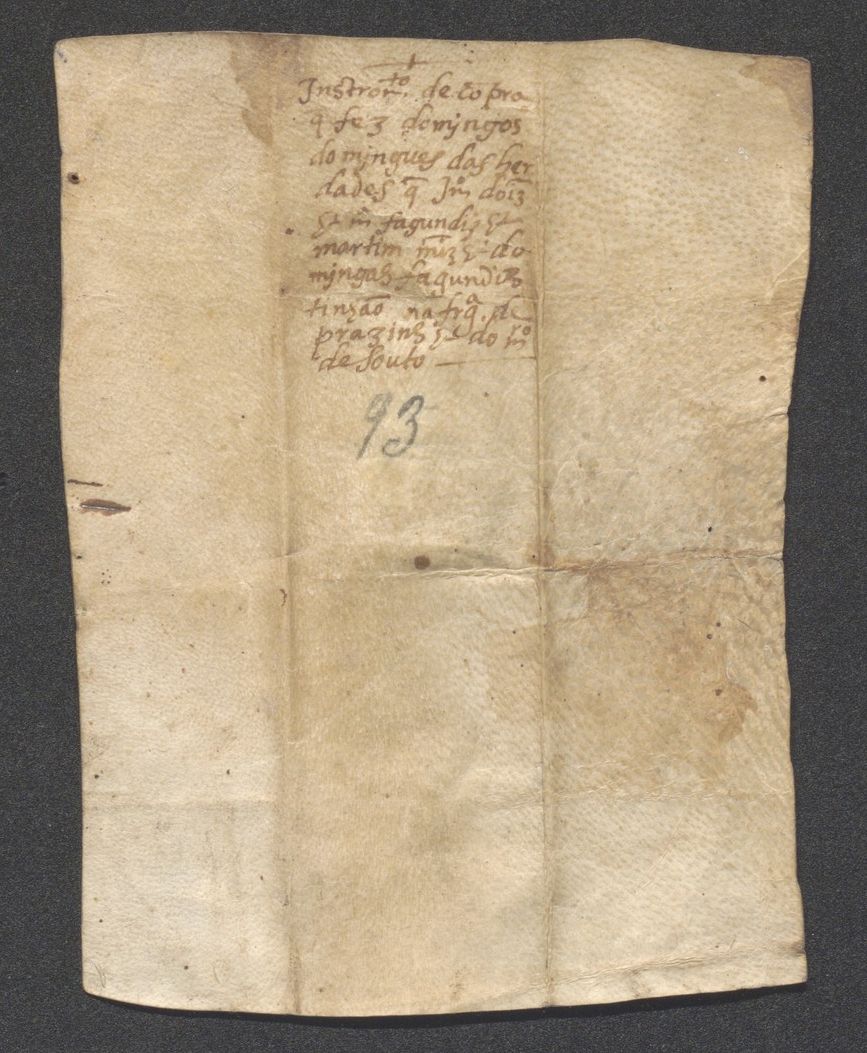 Instrom.to de cõpra
q̃ fez domjngos
domjngues das her
dades q̃ Jº dõiz
& m̃ fagundiz &
martim m̃iz & do
mjngas fagundez
tinhão na frg.ª de
prazins & do m.ro
de souto —
93